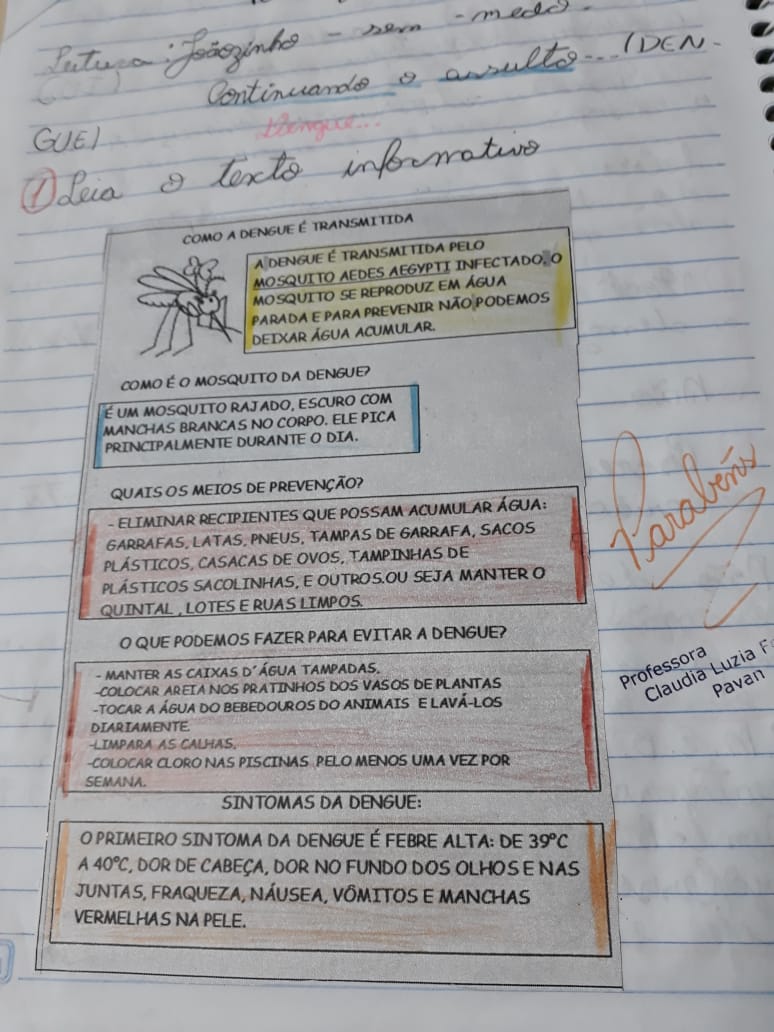 Leitura: Joãozinho - sem - medo.
Continuando o assulto... (DEN-
GUE)
Dengue...
1 Leia o texto informativo
COMO A DENGUE É TRANSMITIDA
A DENGUE É TRANSMITIDA PELO
MOSQUITO AEDES AEGYPTI INFECTADO. O
MOSQUITO SE REPRODUZ EM ÁGUA
PARADA E PARA PREVENIR NÃO PODEMOS
DEIXAR ÁGUA ACUMULAR.
COMO É O MOSQUITO DA DENGUE?
É UM MOSQUITO RAJADO, ESCURO COM
MANCHAS BRANCAS NO CORPO. ELE PICA
PRINCIPALMENTE DURANTE O DIA.
QUAIS OS MEIOS DE PREVENÇÃO?
- ELIMINAR RECIPIENTES QUE POSSAM ACUMULAR ÁGUA:
GARRAFAS, LATAS, PNEUS, TAMPAS DE GARRAFA, SACOS
PLÁSTICOS, CASACAS DE OVOS, TAMPINHAS DE
PLÁSTICOS SACOLINHAS, E OUTROS.OU SEJA MANTER O
QUINTAL , LOTES E RUAS LIMPOS.
Parabéns
O QUE PODEMOS FAZER PARA EVITAR A DENGUE?
- MANTER AS CAIXAS D'ÁGUA TAMPADAS.
-COLOCAR AREIA NOS PRATINHOS DOS VASOS DE PLANTAS
-TOCAR A ÁGUA DO BEBEDOUROS DO ANIMAIS E LAVÁ-LOS
DIARIAMENTE.
-LIMPARA AS CALHAS.
-COLOCAR CLORO NAS PISCINAS PELO MENOS UMA VEZ POR
SEMANA.
Professora
Claudia Luzia
Pavan
SINTOMAS DA DENGUE:
O PRIMEIRO SINTOMA DA DENGUE É FEBRE ALTA: DE 39°C
A 40°C, DOR DE CABEÇA, DOR NO FUNDO DOS OLHOS E NAS
JUNTAS, FRAQUEZA, NÁUSEA, VÔMITOS E MANCHAS
VERMELHAS NA PELE.